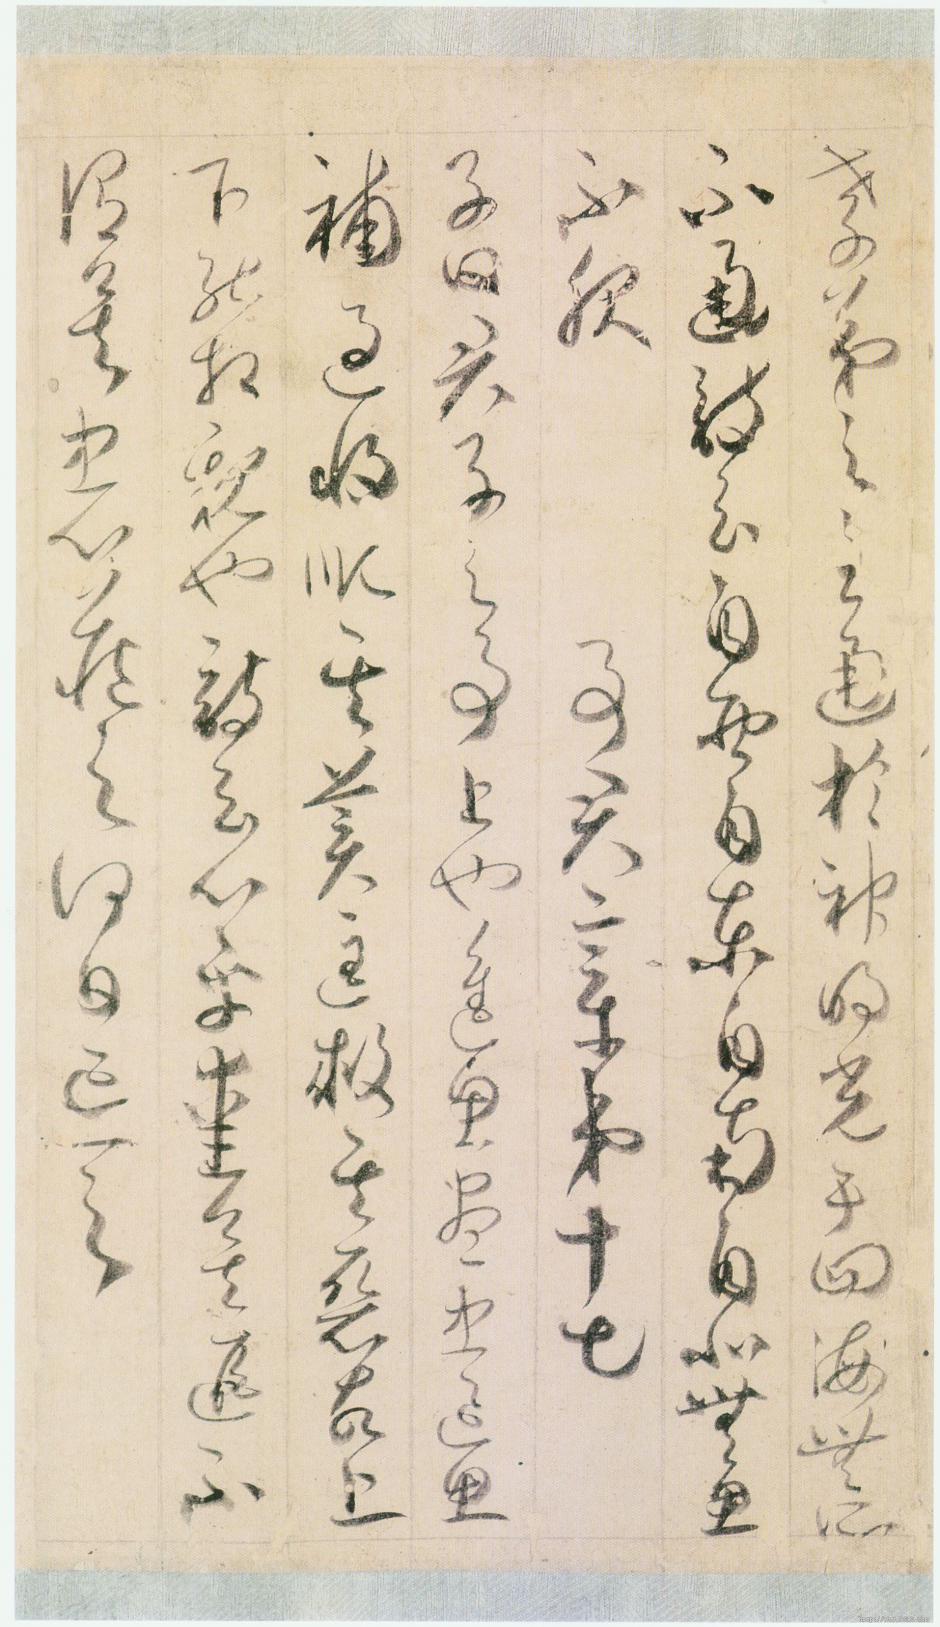 孝弟之至通於神明光于四海無所
不通詩云自西自東自南自北無思
不服　事君章第十七
子曰君子之事上也進思盡忠退思
補過將順其美匡救其惡故上
下能相親也詩云心乎愛矣遐不
謂矣忠心藏之何日忘之